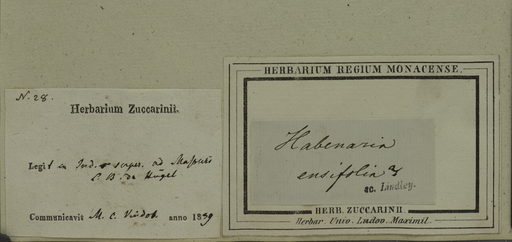 N. 28.
Herbarium Zuccarinii.
Legit in Ind. super. ad
C. B. de Hügel
Communicavit M. C. Vindob. anno 1839
HERBARIUM REGIUM MONACENSE.
Habenaria
ensifolia
sc. Lindley.
HERB. ZUCCARINII
Herbar. Univ. Ludov. Maximil.